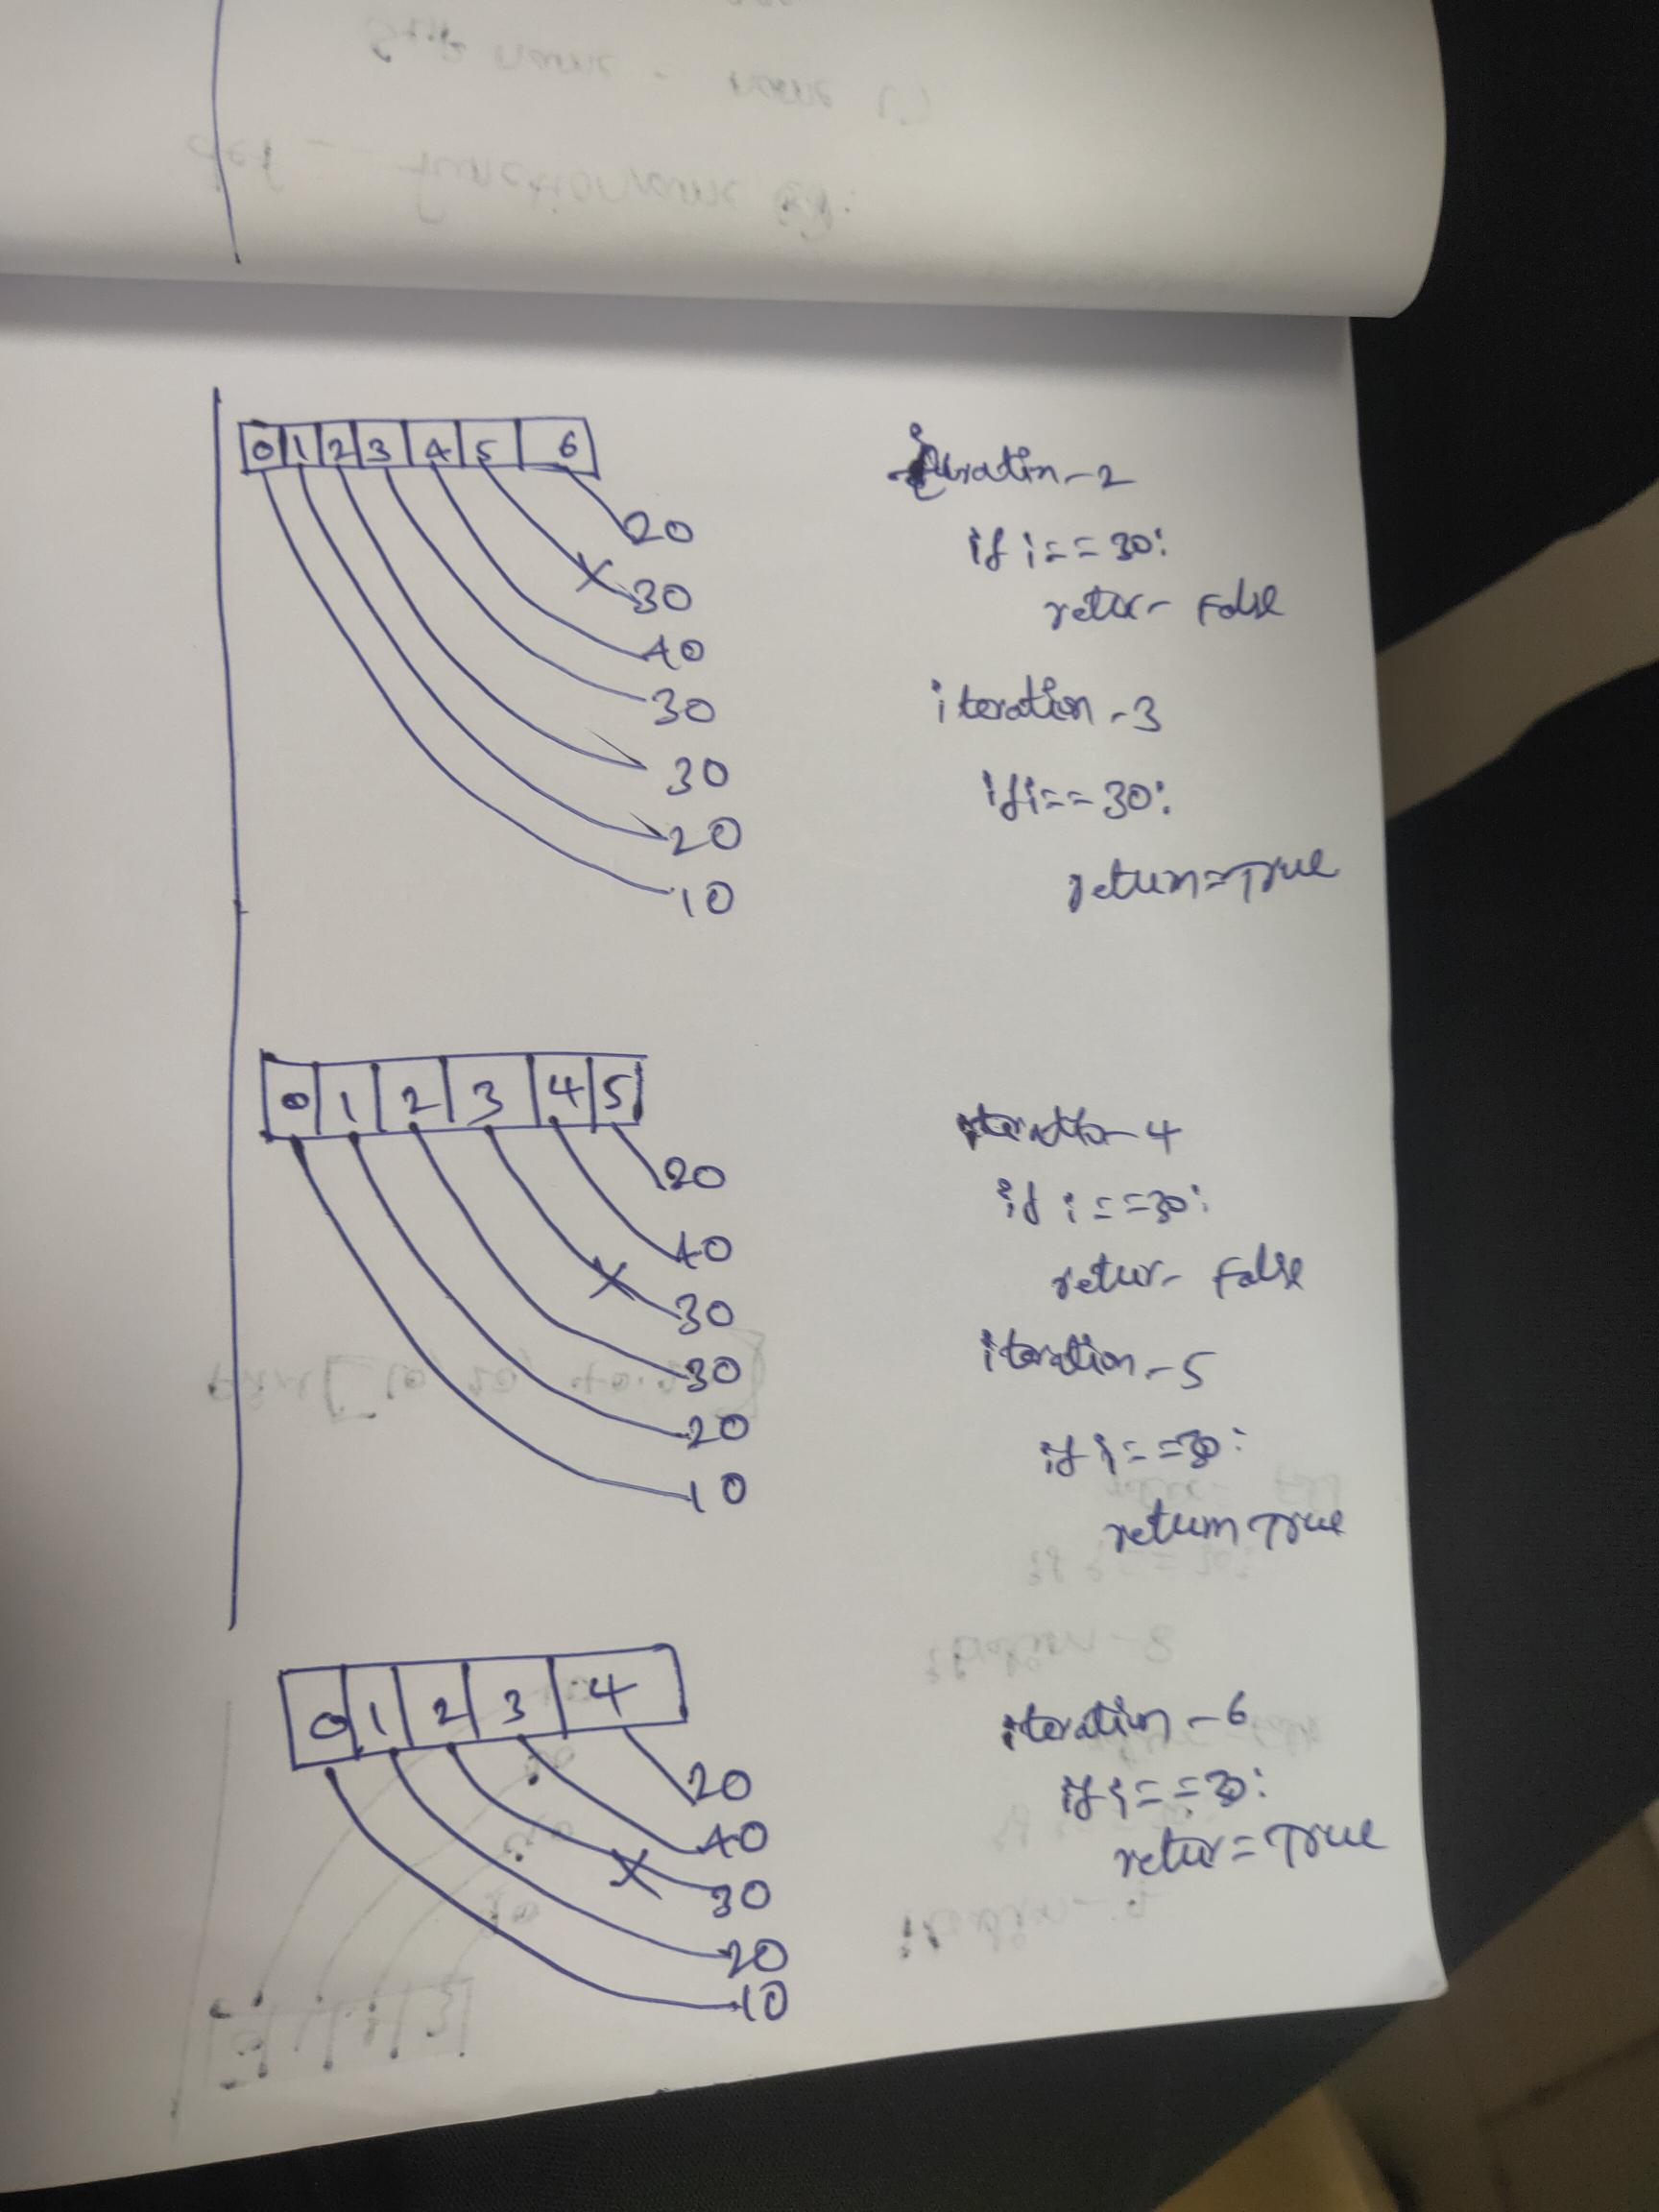 0 1 2 3 4 5 6
20
30
40
30
30
20
10
iteration-2
if i==30:
retur- False
iteration-3
if i==30:
return=True
0 1 2 3 4 5
20
40
30
30
20
10
iteration-4
if i==30:
retur- False
iteration-5
if i==30:
return True
0 1 2 3 4
20
40
30
20
10
iteration-6
if i==30:
retur=True